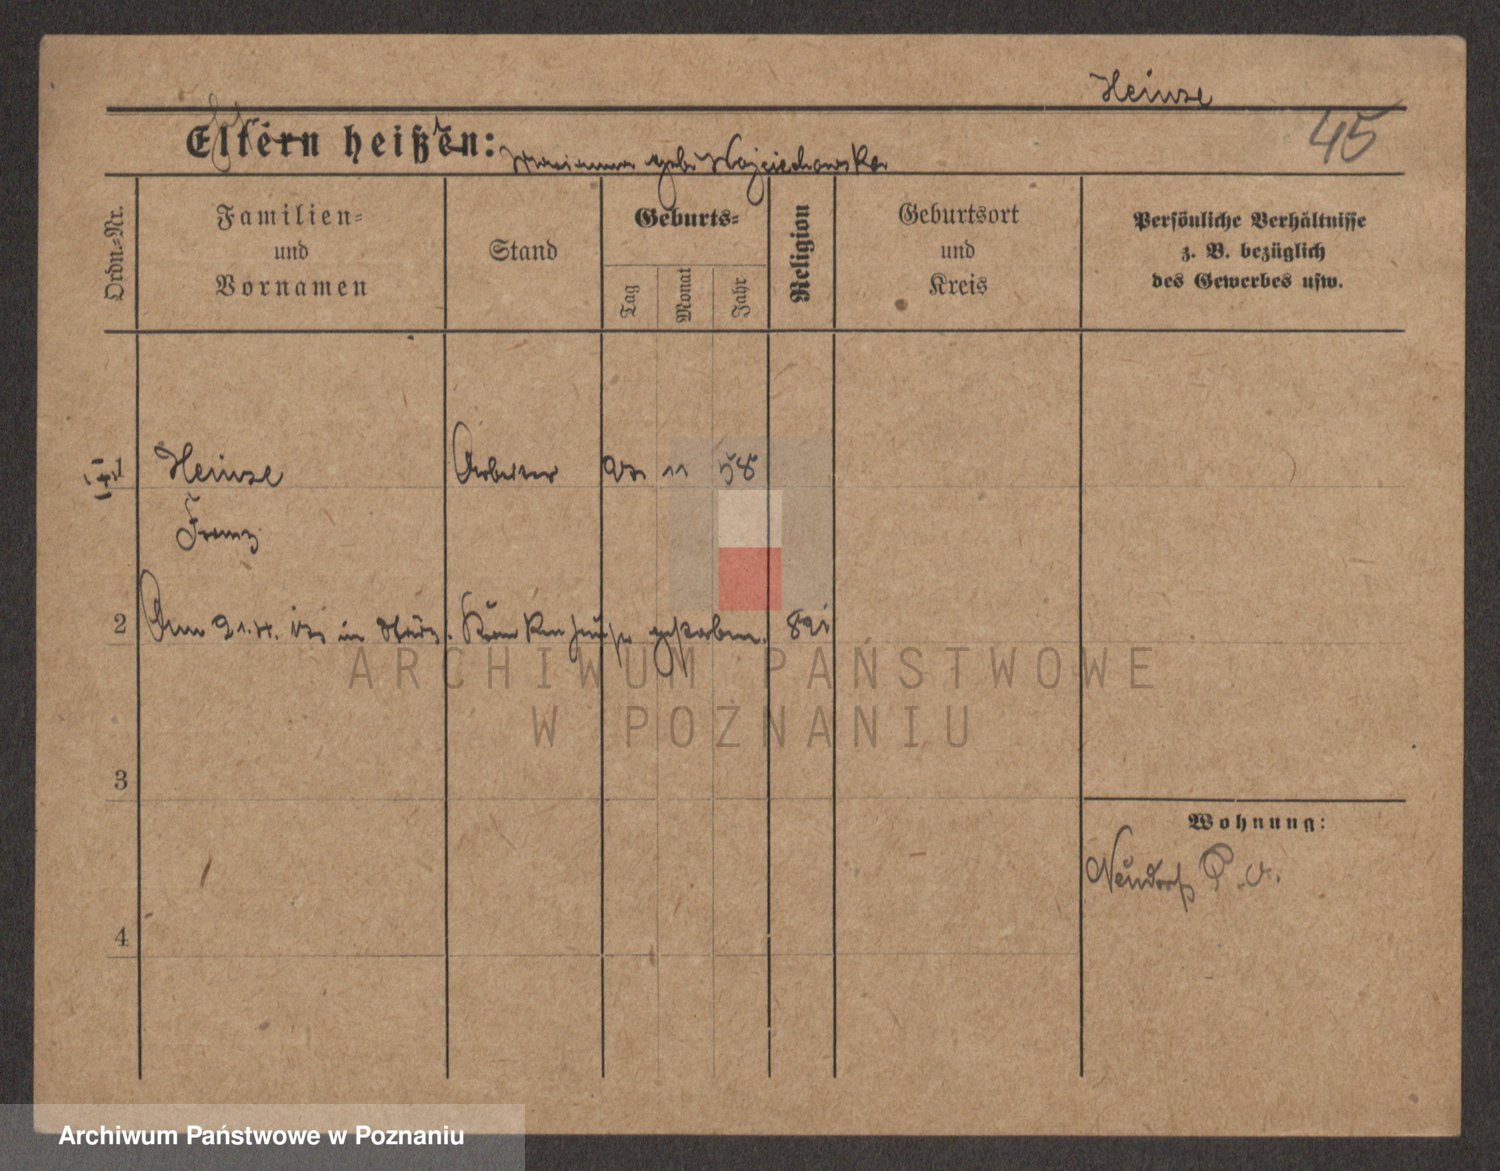 Heinze
45
Eltern heißen:
Marianna geb. Wojciechowska
Ordn.-Nr.
Familien-
und
Vornamen
Stand
Geburts-
Tag
Monat
Jahr
Religion
Geburtsort
und
Kreis
Persönliche Verhältnisse
z. B. bezüglich
des Gewerbes usw.
1 Heinze Arbeiter 11 58
Franz
2 Am in Krankenhause gestorben.
ARCHIWUM PAŃSTWOWE
W POZNANIU
3
Wohnung:
Neudorf
4
Archiwum Państwowe w Poznaniu